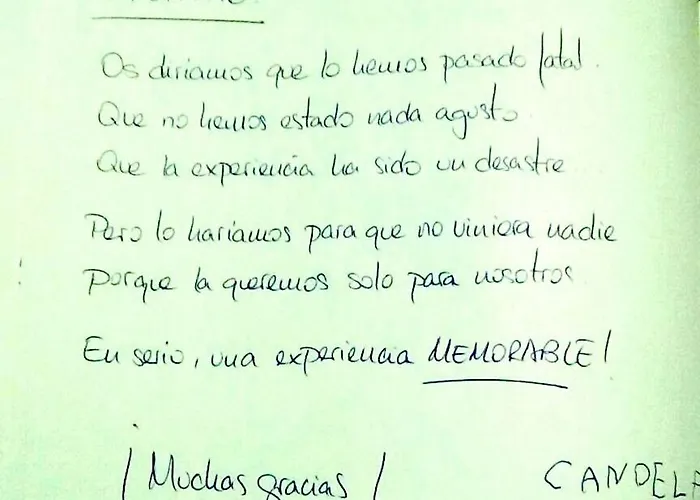 Os diríamos que lo hemos pasado fatal.
Que no hemos estado nada agusto
Que la experiencia ha sido un desastre
Pero lo haríamos para que no viniera nadie
Porque la queremos solo para nosotros
En serio, una experiencia MEMORABLE!
¡Muchas gracias!
CANDELA